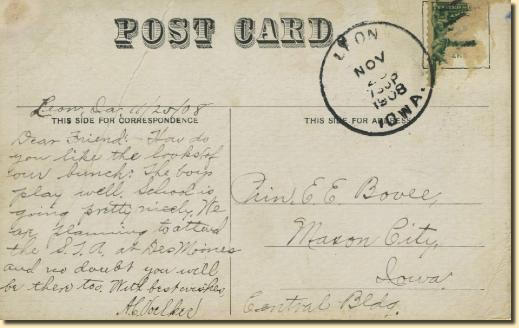 POST CARD
LEON
NOV
730P
1908
IOWA.
Leon, Ia, 11/20/08
THIS SIDE FOR CORRESPONDENCE
THIS SIDE FOR ADDRESS
Dear Friend:- How do
you like the looks of
our bunch? The boys
play well. School is
going pretty nicely. We
are planning to attend
the S.T.A. at Des Moines
and no doubt you will
be there too. With best wishes
Prin. E.E. Bovee,
Mason City,
Iowa.
Central Bldg.